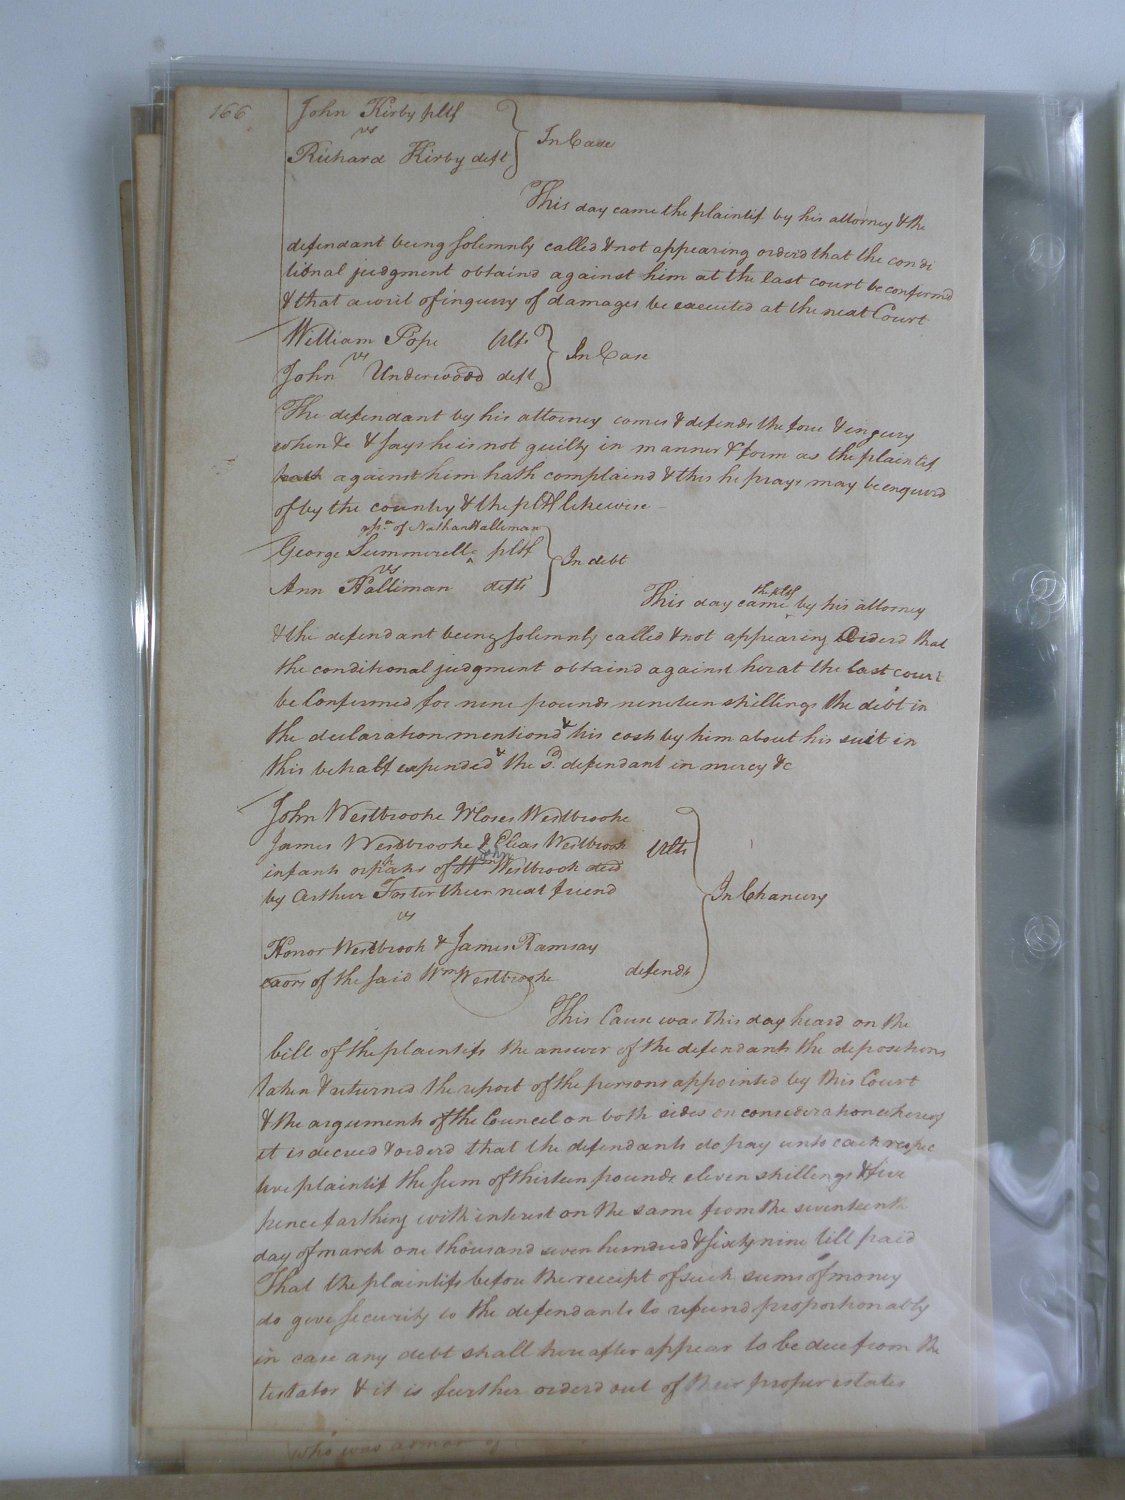 166
John Kirby pltf
vs
Richard Kirby deft
In Case
This day came the plaintif by his attorney & the
defendant being solemnly called & not appearing orderd that the condi
tional judgment obtaind against him at the last court be confirmd
& that a writ of inquiry of damages be executed at the next Court
William Pope pltf
vs
John Underwood deft
In Case
The defendant by his attorney comes & defends the force & engury
when &c & says he is not guilty in manner & form as the plaintif
hath against him hath complaind & this he prays may be enquird
of by the country & the pltf likewise
asse of Nathan Halliman
George Summerell pltf
vs
Ann Halliman defts
In debt
the pltf
This day came by his attorney
& the defendant being solemnly called & not appearing Orderd that
the conditional judgment obtaind against her at the last court
be Confirmed for nine pounds nineteen shillings the debt in
the declaration mentiond & his costs by him about his suit in
this behalf expended & the sd. defendant in mercy &c
John Westbrooke Moses Westbrooke
James Westbrooke & Elias Westbrook
infants orphans of Wm Westbrook decd
by Arthur Foster their next friend
pltfs
vs
Honor Westbrook & James Ramsay
exors of the said Wm Westbrooke
defends
In Chancery
This Cause was this day heard on the
bill of the plaintifs the answer of the defendants the depositions
taken & returned the report of the persons appointed by this Court
& the arguments of the Councel on both sides on consideration whereof
it is decreed & orderd that the defendants do pay unto each respec
tive plaintif the sum of thirteen pounds eleven shillings & five
pence farthing with interest on the same from the seventeenth
day of march one thousand seven hundred & sixty nine till paid
That the plaintifs before the receipt of such sums of money
do give security to the defendants to refund proportionably
in case any debt shall hereafter appear to be due from the
testator & it is further orderd out of their proper estates
who was